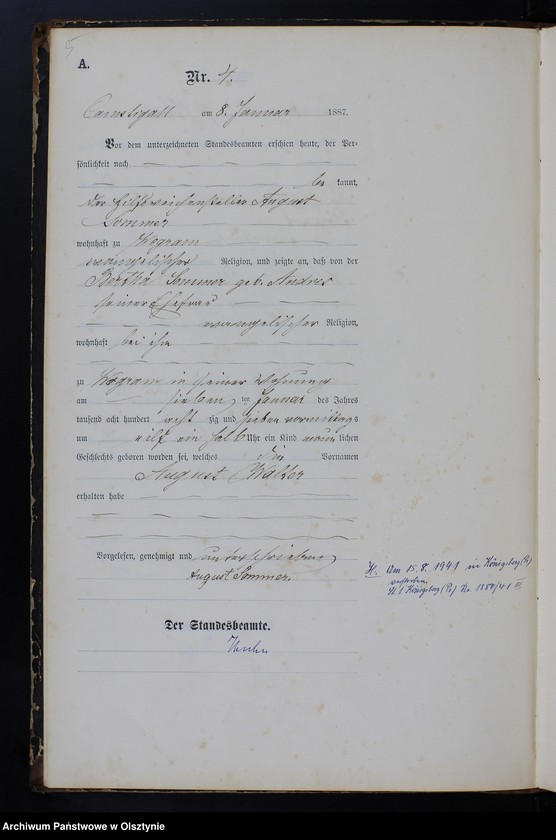 5
A.
Nr. 4.
Camstigall am 8. Januar 1887.
Vor dem unterzeichneten Standesbeamten erschien heute, der Per-
sönlichkeit nach
be kannt,
der Hilfsweichensteller August
Sommer
wohnhaft zu Kogram
evangelischer Religion, und zeigte an, daß von der
Bertha Sommer geb. Andres
seiner Ehefrau
evangelischer Religion,
wohnhaft bei ihm
zu Kogram in seiner Wohnung
am sieben ten Januar des Jahres
tausend acht hundert acht zig und sieben vormittags
um eilf ein halb Uhr ein Kind männ lichen
Geschlechts geboren worden sei, welches die Vornamen
August Walter
erhalten habe
Vorgelesen, genehmigt und unterschrieben
August Sommer.
Der Standesbeamte.
H. Am 15.8.1941 in Königsberg (Pr)
verstorben.
St. I Königsberg (Pr) Nr. 1850/41 III
Archiwum Państwowe w Olsztynie